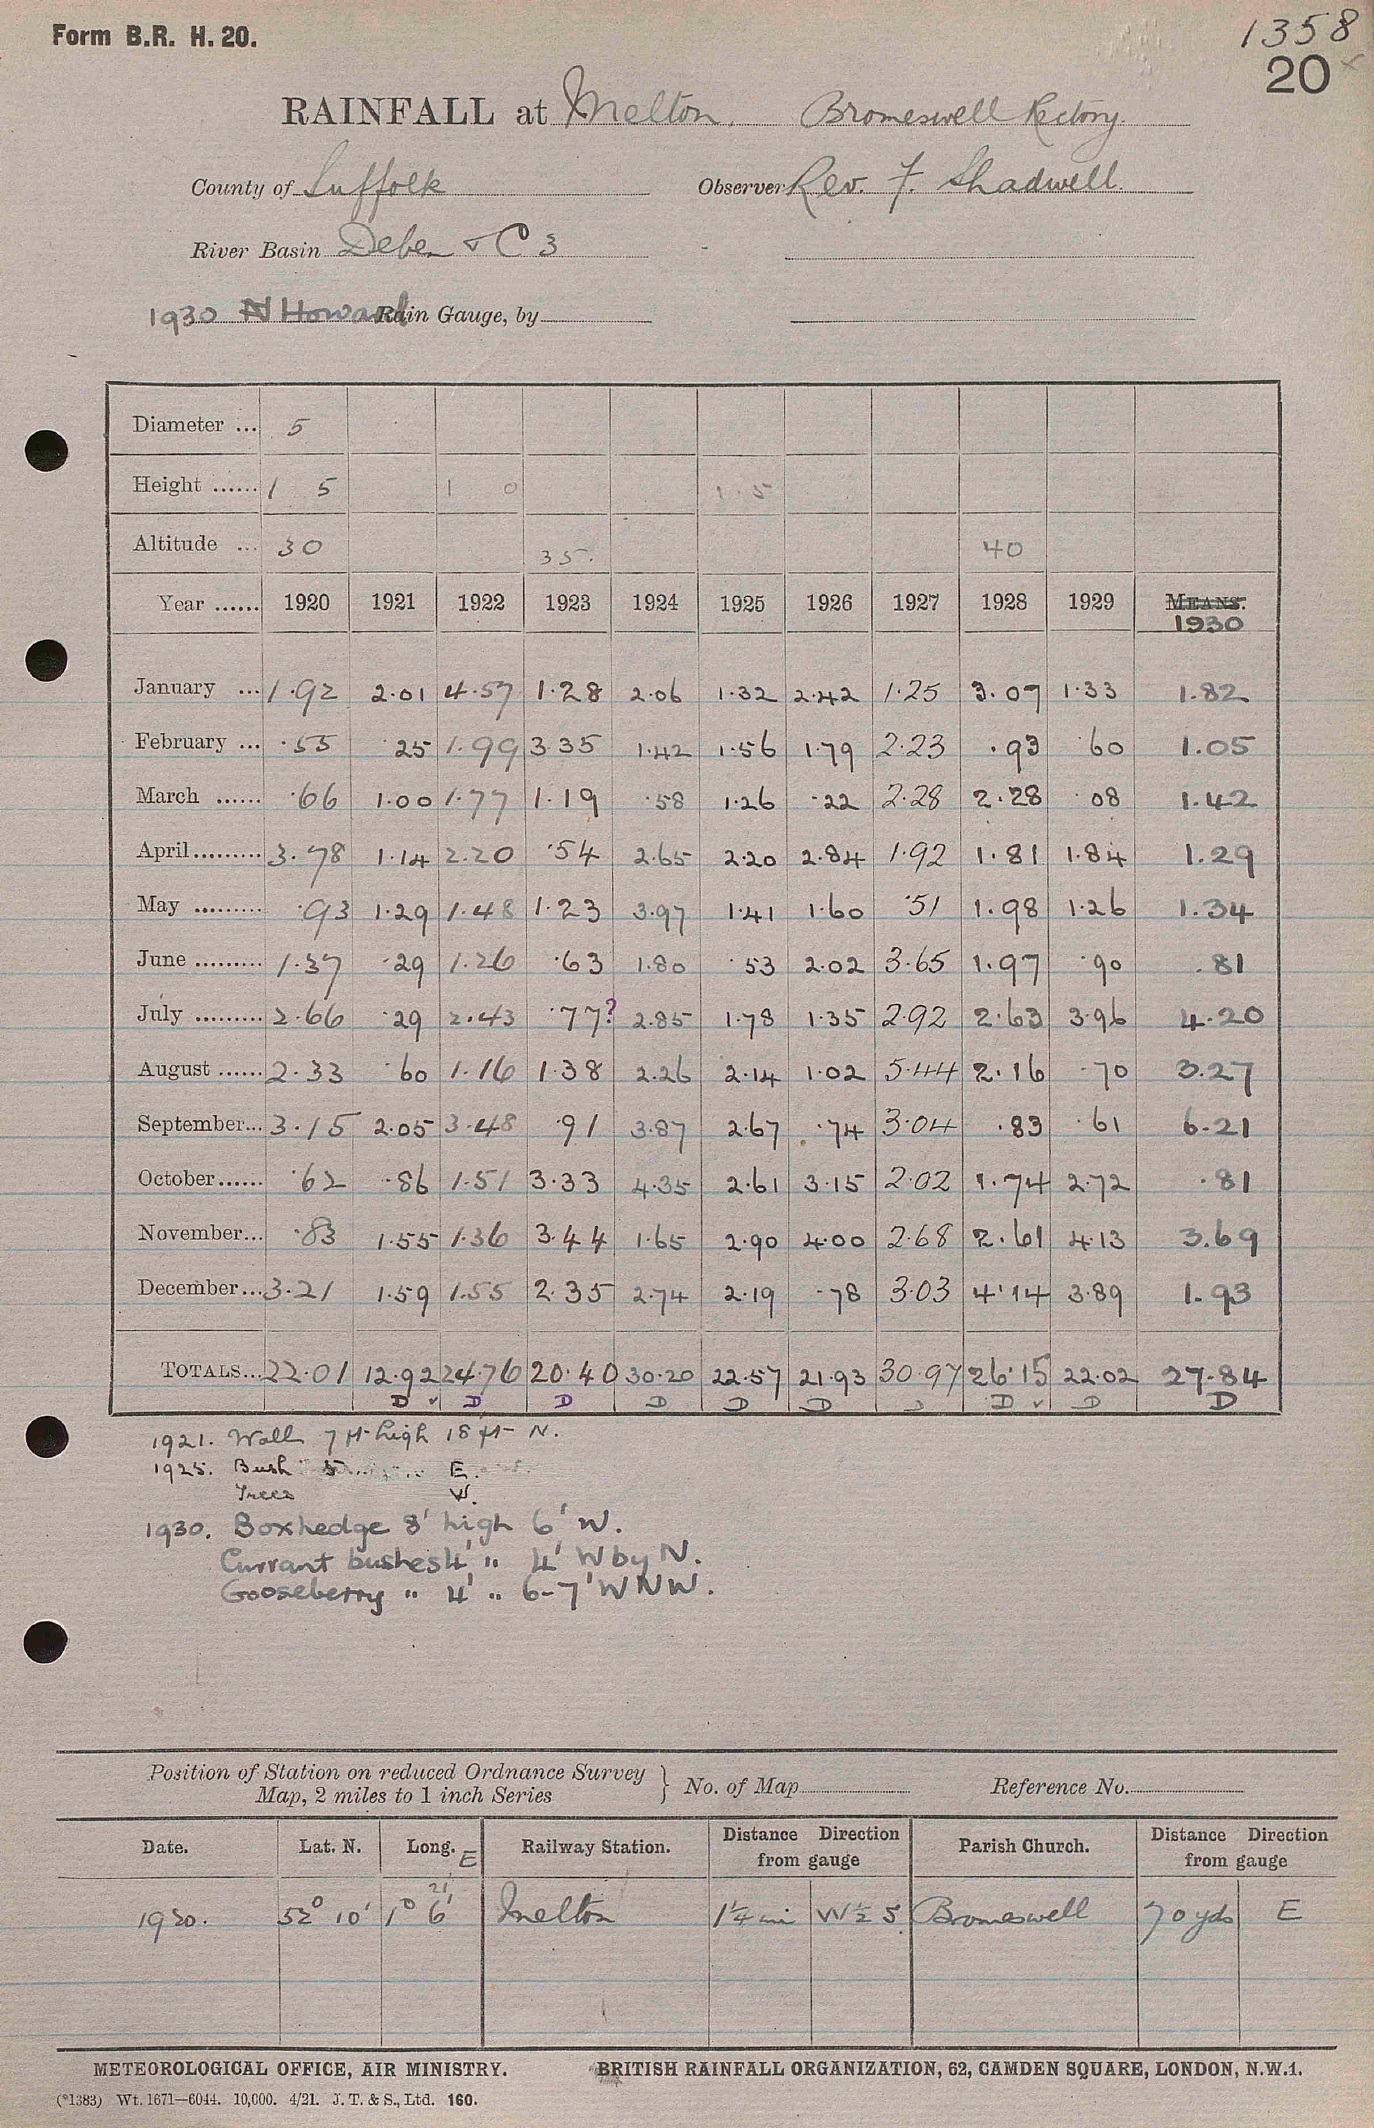 Form B.R. H. 20.
1358
20
RAINFALL at Melton. Bromeswell Rectory.
County of Suffolk Observer Rev. F. Shadwell.
River Basin Deben & C 3
1930 N Howard Rain Gauge, by
Diameter ... 5
Height ...... 1 5 1 0 1·5
Altitude ... 30 35. 40
Year ...... 1920 1921 1922 1923 1924 1925 1926 1927 1928 1929 MEANS.
1930
January ... 1·92 2·01 4·57 1·28 2·06 1·32 2·42 1·25 3·07 1·33 1·82
February ... ·55 ·25 1·99 3·35 1·42 1·56 1·79 2·23 ·93 ·60 1·05
March ...... ·66 1·00 1·77 1·19 ·58 1·26 ·22 2·28 2·28 ·08 1·42
April ......... 3·78 1·14 2·20 ·54 2·65 2·20 2·84 1·92 1·81 1·84 1·29
May ......... ·93 1·29 1·48 1·23 3·97 1·41 1·60 ·51 1·98 1·26 1·34
June ......... 1·37 ·29 1·26 ·63 1·80 ·53 2·02 3·65 1·97 ·90 ·81
July ......... 2·66 ·29 2·43 ·77? 2·85 1·78 1·35 2·92 2·63 3·96 4·20
August ...... 2·33 ·60 1·16 1·38 2·26 2·14 1·02 5·44 2·16 ·70 3·27
September... 3·15 2·05 3·48 ·91 3·87 2·67 ·74 3·04 ·83 ·61 6·21
October...... ·62 ·86 1·51 3·33 4·35 2·61 3·15 2·02 1·74 2·72 ·81
November... ·83 1·55 1·36 3·44 1·65 2·90 4·00 2·68 2·61 4·13 3·69
December... 3·21 1·59 1·55 2·35 2·74 2·19 ·78 3·03 4·14 3·89 1·93
TOTALS... 22·01 12·92 24·76 20·40 30·20 22·57 21·93 30·97 26·15 22·02 27·84
D ✓ D D D D D D D ✓ D D
1921. Wall 7 ft high 18 ft N.
1925. Bush 5 E.
Trees W.
1930. Boxhedge 8' high 6' W.
Currant bushes 4' " 4' W by N.
Gooseberry " 4' " 6-7' WNW.
Position of Station on reduced Ordnance Survey
Map, 2 miles to 1 inch Series } No. of Map Reference No.
Date. Lat. N. Long. E Railway Station. Distance Direction from gauge Parish Church. Distance Direction from gauge
21'
1920. 52° 10' 1° 6' Melton 1¼ mi W½S. Bromeswell 70 yds E
METEOROLOGICAL OFFICE, AIR MINISTRY. BRITISH RAINFALL ORGANIZATION, 62, CAMDEN SQUARE, LONDON, N.W.1.
(*1383) Wt. 1671—6044. 10,000. 4/21. J. T. & S., Ltd. 160.